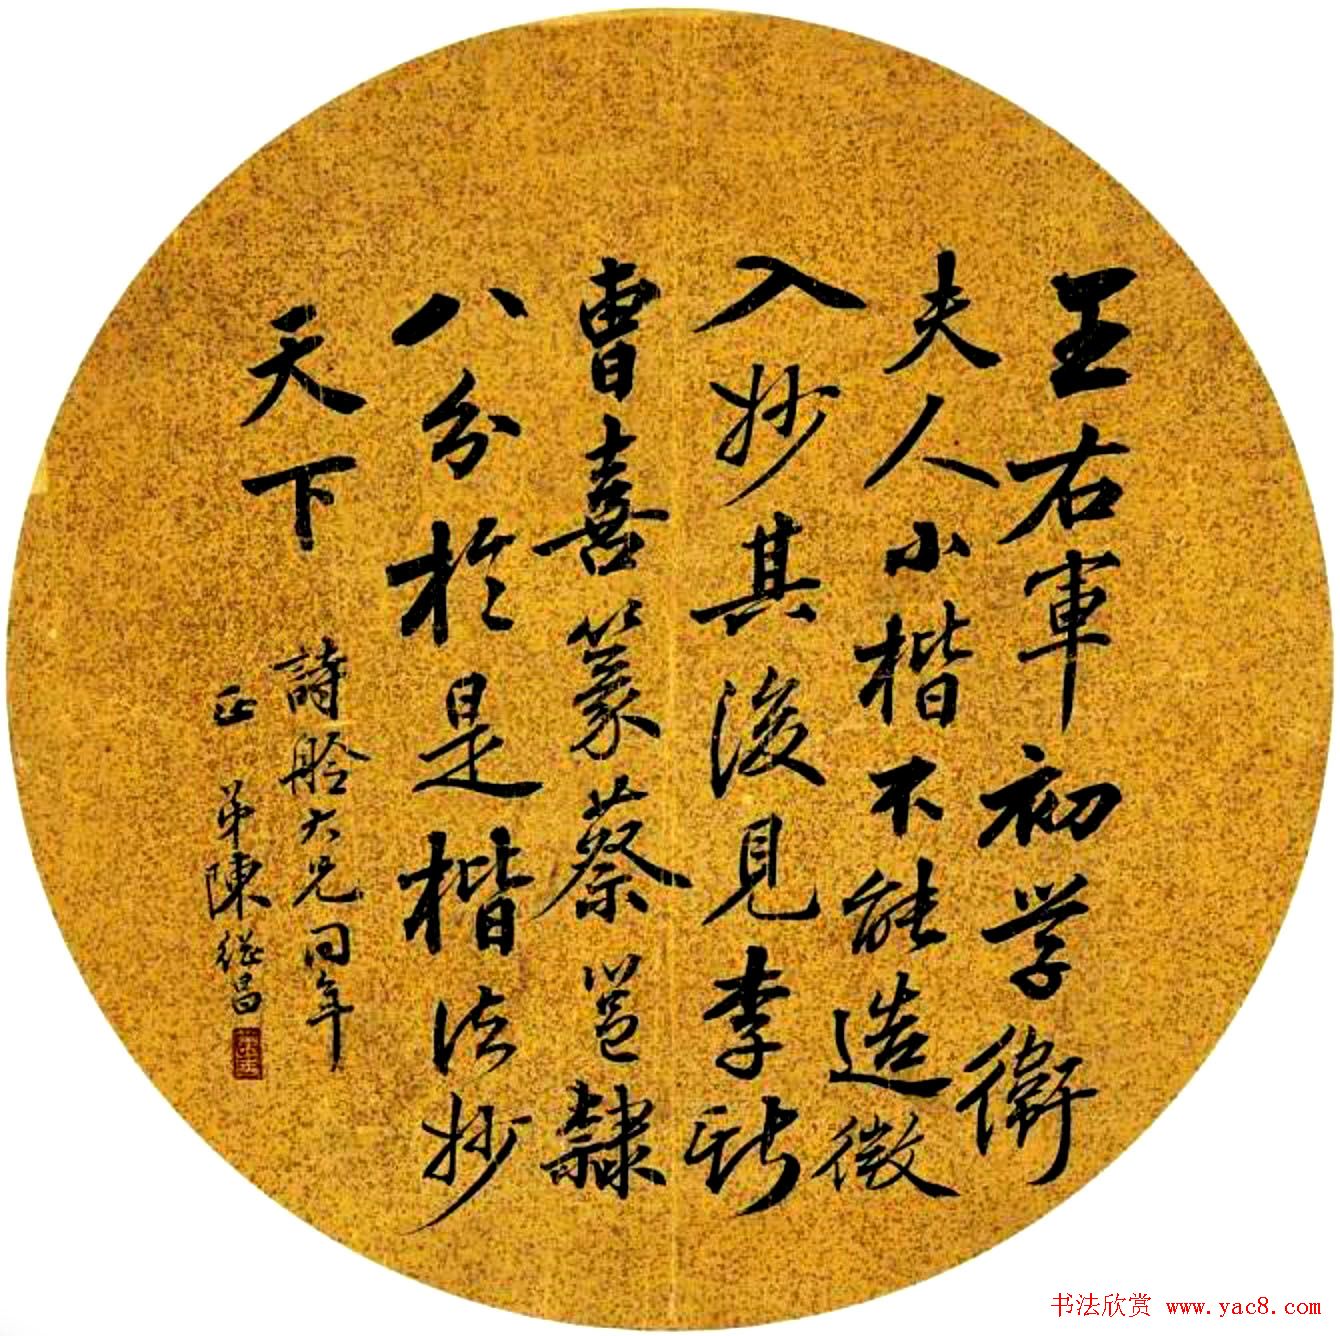 王右軍初学衛
夫人小楷不能造微
入妙其後見李斯
曹喜篆蔡邕隸
八分於是楷法妙
天下
詩舲大兄同年
正 弟陳继昌
书法欣赏 www.yac8.com